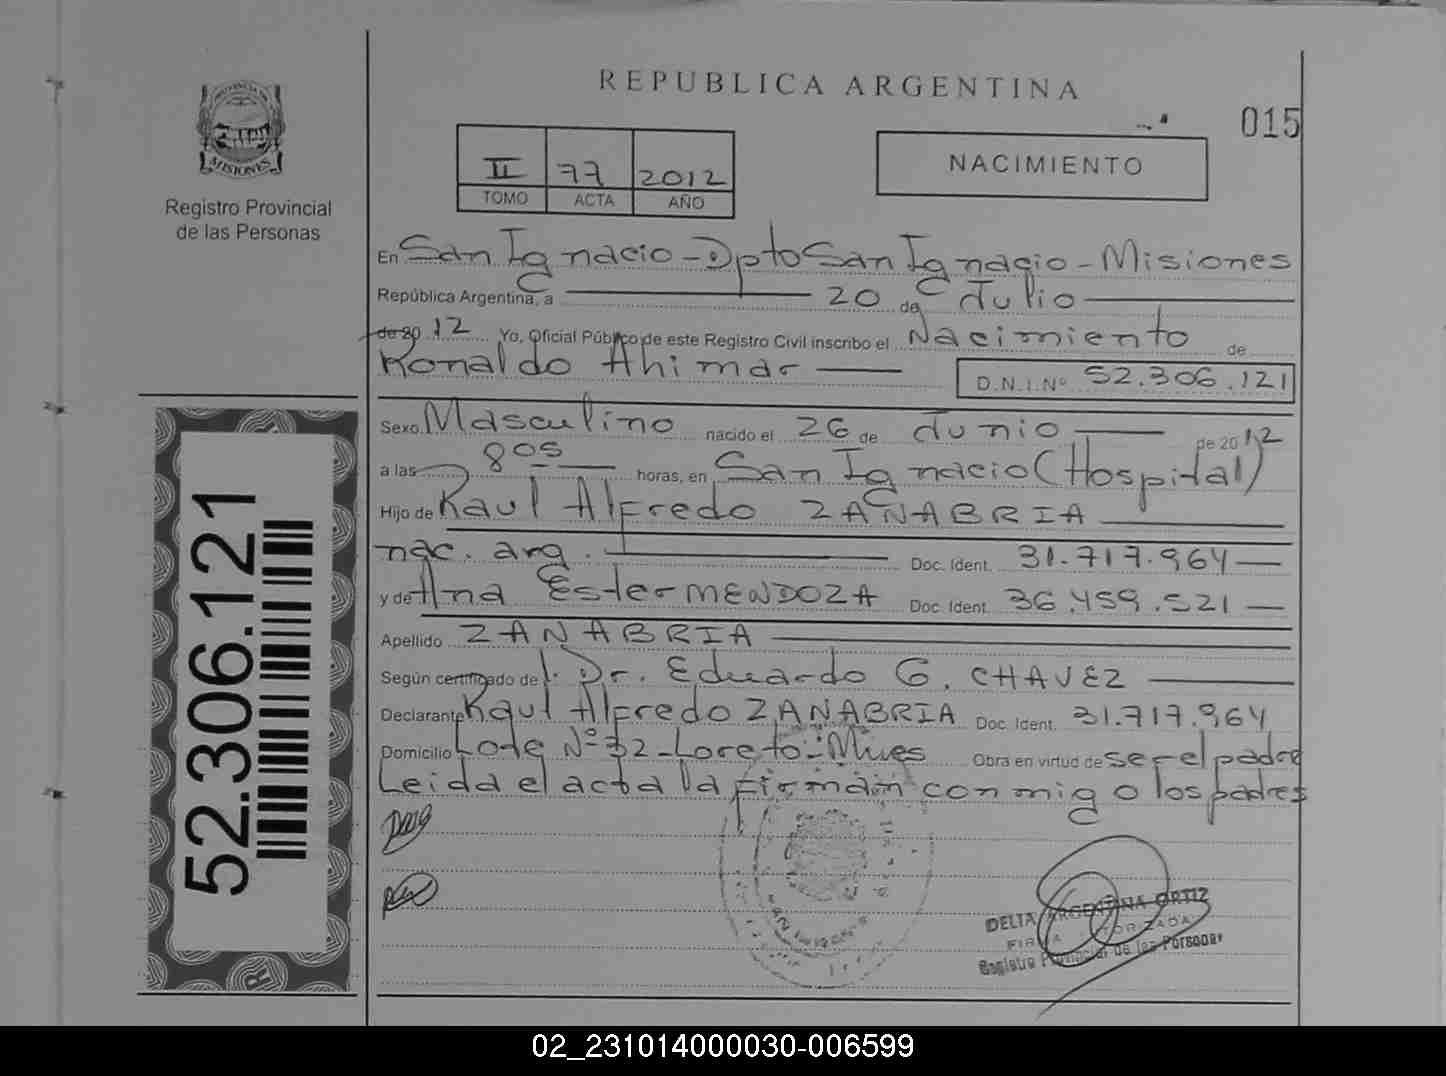 REPUBLICA ARGENTINA
015
PROVINCIA DE
MISIONES
Registro Provincial
de las Personas
II 77 2012
TOMO ACTA AÑO
NACIMIENTO
En San Ignacio - Dpto San Ignacio - Misiones
República Argentina, a 20 de Julio
de 20 12 Yo, Oficial Público de este Registro Civil inscribo el Nacimiento de
Ronaldo Ahimar D.N.I.Nº 52.306.121
Sexo Masculino nacido el 26 de Junio de 20 12
a las 8 05 horas, en San Ignacio (Hospital)
Hijo de Raul Alfredo ZANABRIA
nac. arg. Doc. Ident. 31.717.964
y de Ana Ester MENDOZA Doc. Ident. 36.459.521
Apellido ZANABRIA
Según certificado de l. Dr. Eduardo G. CHAVEZ
Declarante Raul Alfredo ZANABRIA Doc. Ident. 31.717.964
Domicilio Lote Nº 32 - Loreto - Mnes Obra en virtud de ser el padre
Leida el acta la firman conmigo los padres
52.306.121
DELIA ARGENTINA ORTIZ
FIRMA AUTORIZADA
Registro Provincial de las Personas
02_231014000030-006599